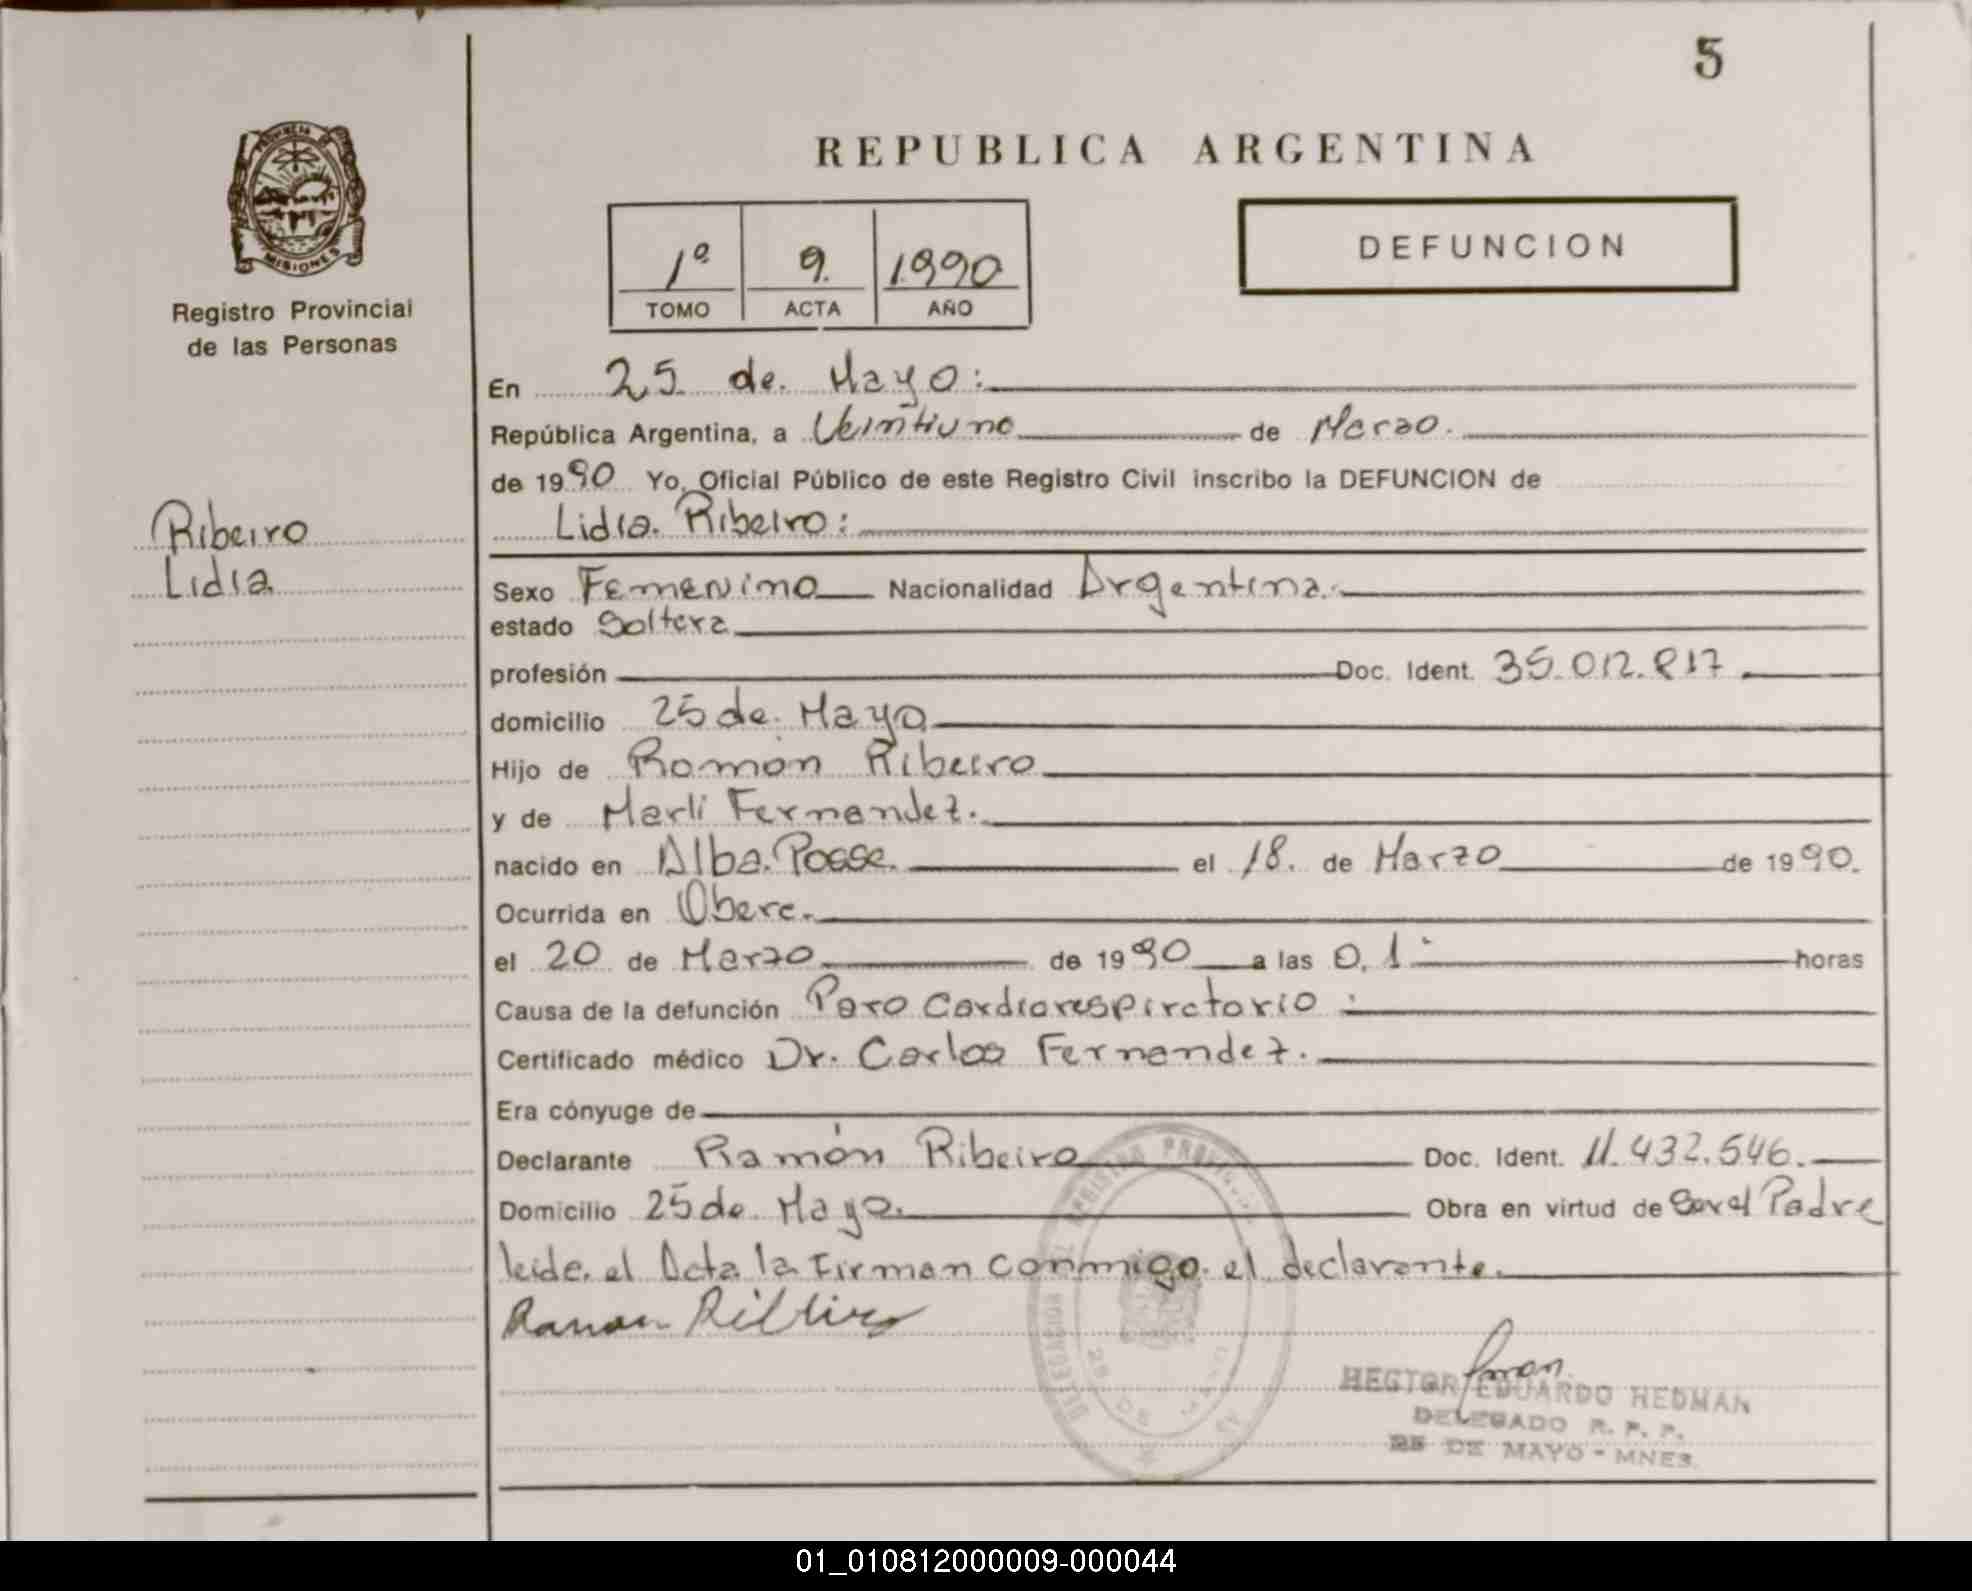 5
PROVINCIA
MISIONES
Registro Provincial
de las Personas
Ribeiro
Lidia
REPUBLICA ARGENTINA
1º 9. 1.990
TOMO ACTA AÑO
DEFUNCION
En 25 de Mayo:
República Argentina, a Veintiuno de Marzo.
de 1990 Yo, Oficial Público de este Registro Civil inscribo la DEFUNCION de
Lidia Ribeiro:
Sexo Femenino Nacionalidad Argentina
estado Soltera
profesión Doc. Ident. 35.012.817
domicilio 25 de Mayo
Hijo de Ramón Ribeiro
y de Marli Fernandez.
nacido en Alba Posse. el 18. de Marzo de 1990.
Ocurrida en Obera.
el 20 de Marzo de 1990 a las 0,1 horas
Causa de la defunción Paro Cardiorespiratorio :
Certificado médico Dr. Carlos Fernandez.
Era cónyuge de
Declarante Ramón Ribeiro Doc. Ident. 11.432.546.
Domicilio 25 de Mayo. Obra en virtud de Ser el Padre
leida el Acta la Firman conmigo el declarante.
Ramon Ribeiro
HECTOR EDUARDO HEDMAN
DELEGADO R. P. P.
25 DE MAYO - MNES.
01_010812000009-000044